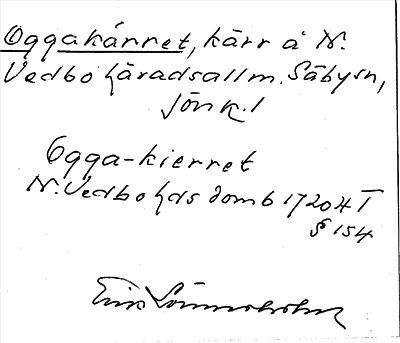 Oggakärret, kärr å N.
Vedbo häradsallm. Säbysn,
Jönk.l
Ogga-kierret
N. Vedbo hds domb 1720 HT
§ 154
Erik